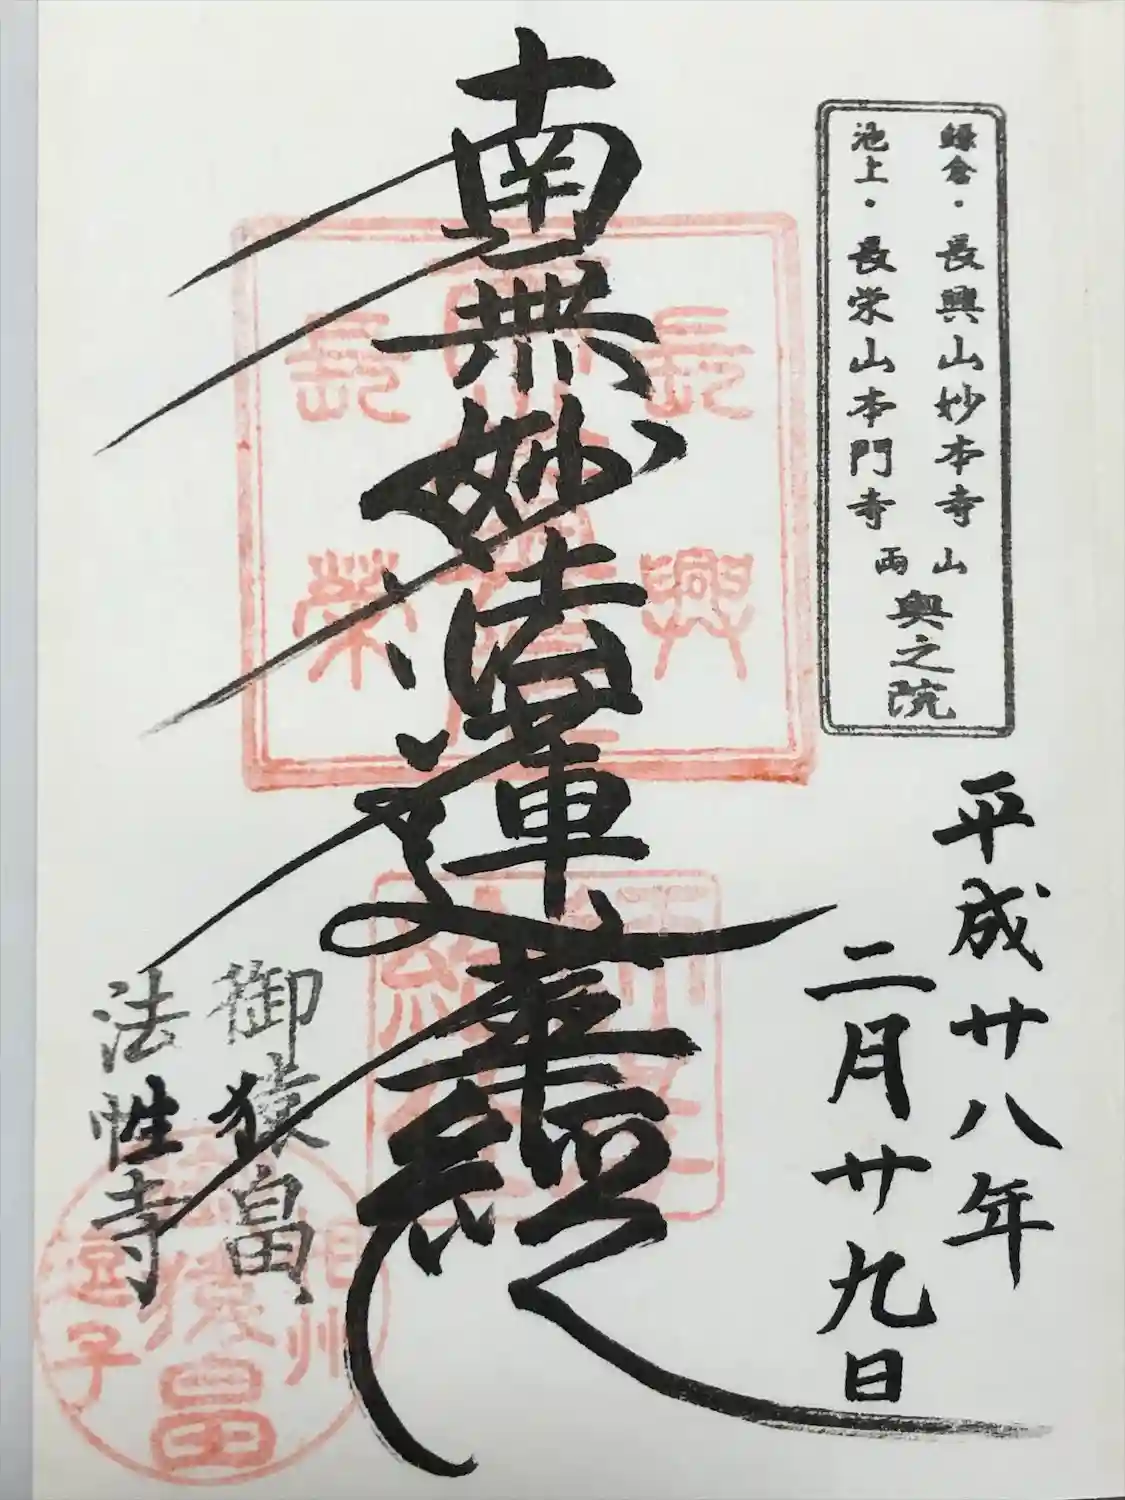 鎌倉・長興山妙本寺
池上・長栄山本門寺
両山
奥之院
平成廿八年
二月廿九日
南無妙法蓮華経
御猿畠
法性寺
長興
長榮
相州
猿畠
逗子